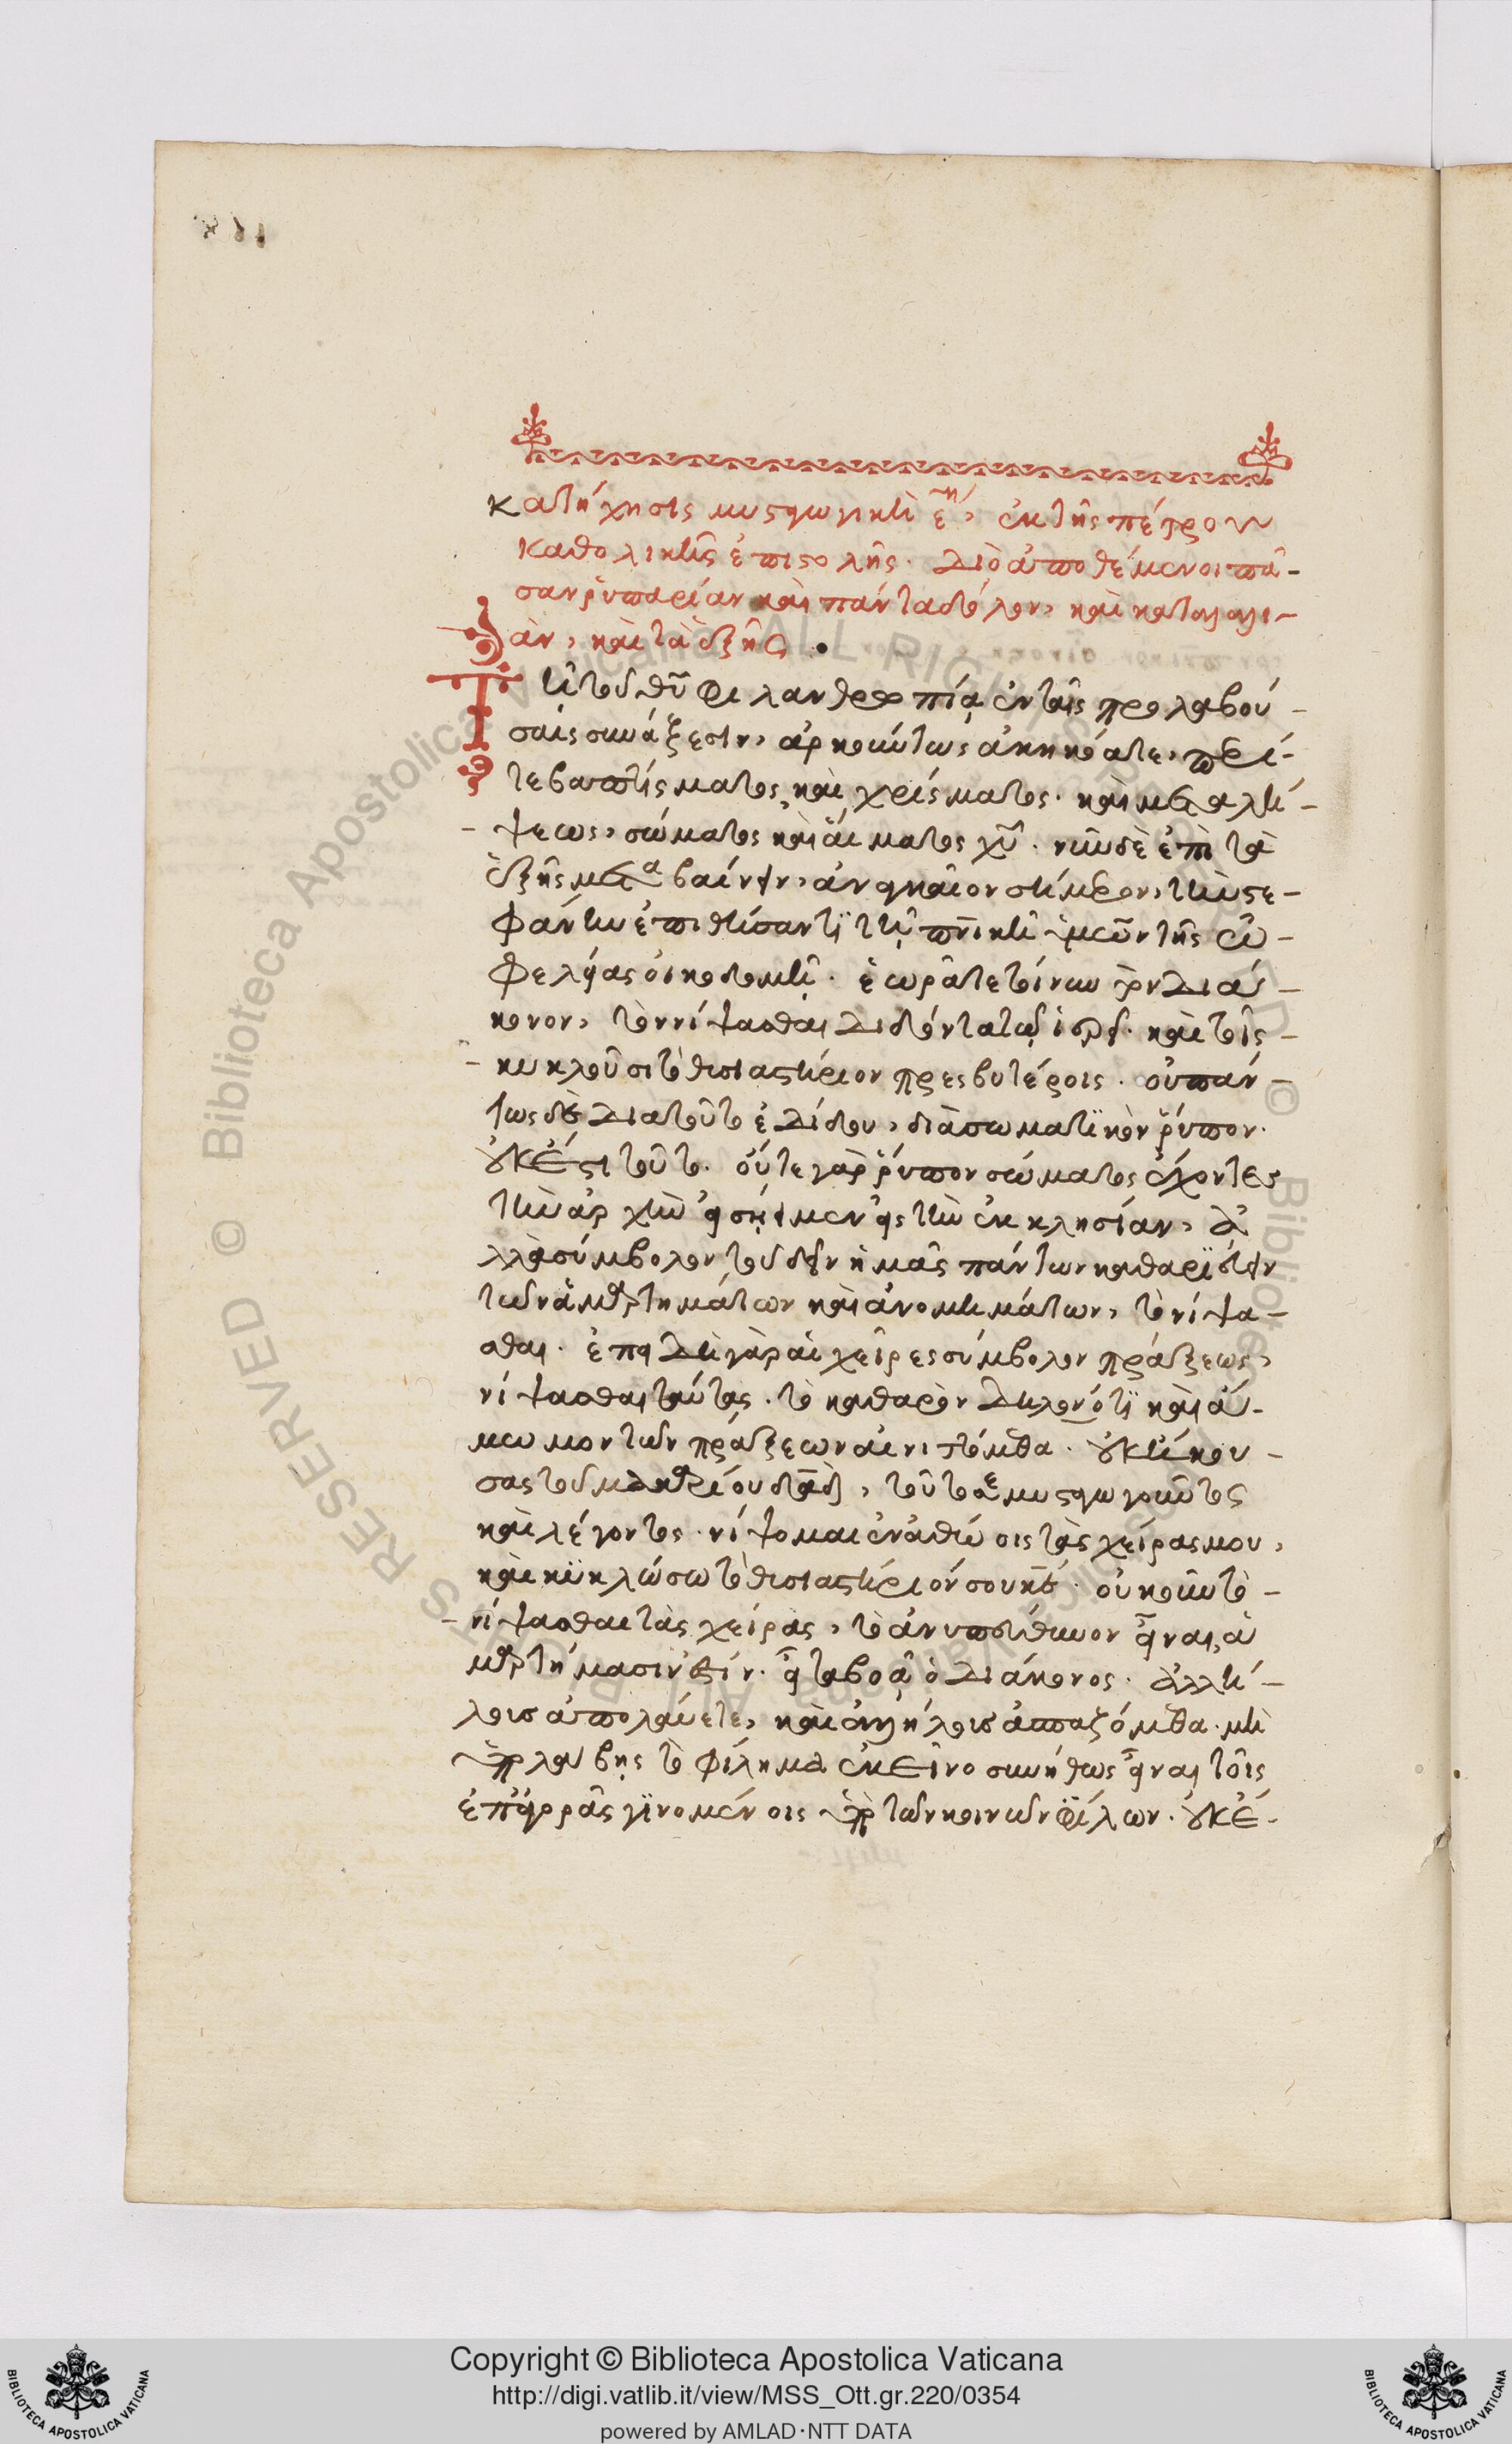 Κατήχησις μυσταγωγικὴ ε´η, ἐκ τῆς πέτρου
καθολικῆς ἐπιστολῆς. Διὸ ἀποθέμενοι πᾶ-
σαν ῥυπαρίαν καὶ πάντα δόλον, καὶ καταλαλι-
ὰν, καὶ τὰ ἑξῆς.
Τῇ τοῦ θῦ φιλανθρωπίᾳ ἐν ταῖς προλαβού-
σαις συνάξεσιν, ἀρκούντως ἀκηκόατε, περί-
τε βαπτίσματος, καὶ χρίσματος. καὶ μεταλή-
ψεως, σώματος καὶ αἵματος χῦ. νῦν δὲ ἐπὶ τὰ
ἑξῆς μεταβαίνειν, ἀναγκαῖον σήμερον, τὴν στε-
φάνην ἐπιθήσαντι τῇ πνικῇ ὑμῶν τῆς ὠ-
φελείας οἰκοδομῇ. ἑωράτε τοίνυν τὸν διά-
κονον, τὸν νίψασθαι διδόντα τῷ ἱερεῖ. καὶ τοῖς
κυκλοῦσι τὸ θυσιαστήριον πρεσβυτέροις. οὐ πάν-
τως δὲ διατοῦτο ἐδίδου, διὰ σωματικὸν ῥύπον.
οὐκ ἔστι τοῦτο. οὔτε γὰρ ῥύπον σώματος ἔχοντες
τὴν ἀρχὴν εἰσῄειμεν εἰς τὴν ἐκκλησίαν, ἀ
λλὰ σύμβολον τοῦ δεῖν ἡμᾶς πάντων καθαρίσειν
τῶν ἁμαρτημάτων καὶ ἀνομημάτων, τὸ νίψα-
σθαι. ἐπειδὴ γὰρ αἱ χεῖρες σύμβολον πράξεως,
νίψασθαι ταύτας. τὸ καθαρὸν δηλονότι καὶ ἄ-
μωμον τῶν πράξεων αἰνιττόμεθα. οὐκ ἤκου-
σας τοῦ μακαρίου δαδ, τοῦτο μυσταγωγοῦντος
καὶ λέγοντος. νίψομαι ἐν ἀθώοις τὰς χεῖρας μου,
καὶ κυκλώσω τὸ θυσιαστήριόν σου κε. οὐκοῦν τὸ
νίψασθαι τὰς χεῖρας, τὸ ἀνυπεύθυνον εἶναι, ἁ
μαρτήμασιν ἐστίν. εἶτα βοᾷ ὁ διάκονος. ἀλλή-
λους ἀπολαύετε, καὶ ἀλλήλους ἀσπαζόμεθα. μὴ
ὑπολάβης τὸ φίλημα ἐκεῖνο συνήθως εἶναι τοῖς
ἐπ' ἀγορᾶς γινομένοις ὑπὸ τῶν κοινῶν φίλων. οὐκ ἔ-
Copyright © Biblioteca Apostolica Vaticana
http://digi.vatlib.it/view/MSS_Ott.gr.220/0354
powered by AMLAD·NTT DATA